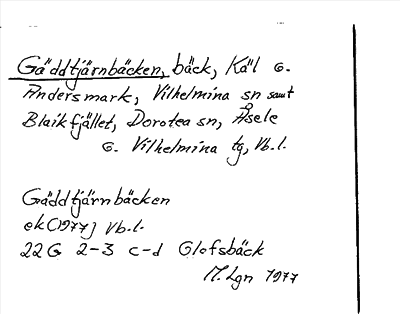 Gäddtjärnbäcken, bäck, Käl o.
Andersmark, Vilhelmina sn samt
Blaikfjället, Dorotea sn, Åsele
o. Vilhelmina tg, Vb.l.
Gäddtjärnbäcken
ek (1977) Vb.l.
22G 2-3 c-d Glofsbäck
M. Lgn 1977